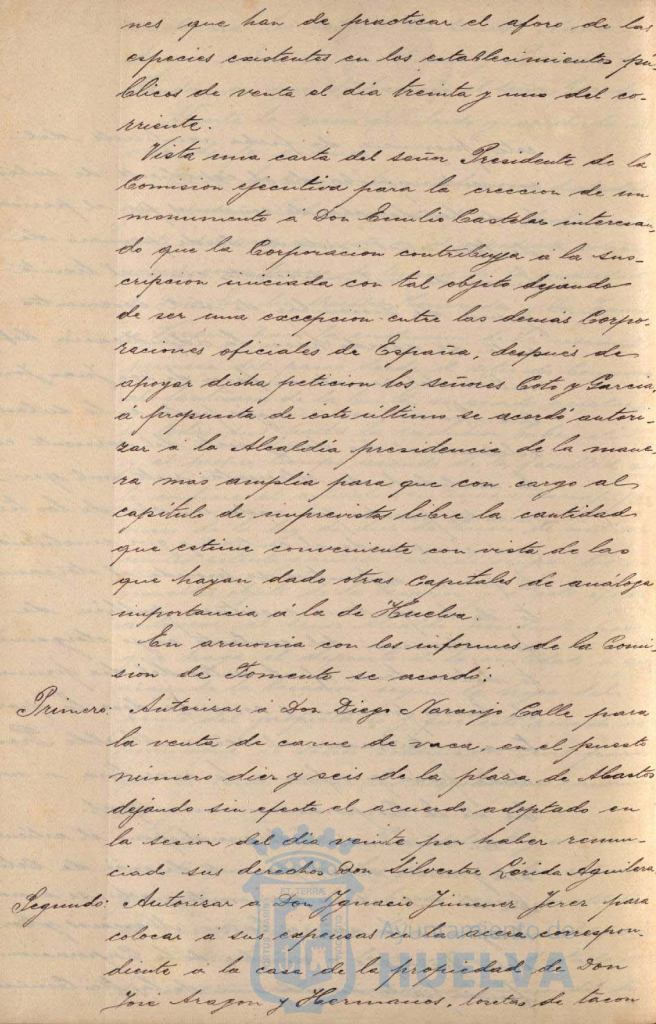 nes que han de practicar el aforo de las
especies existentes en los establecimientos pú-
blicos de venta el dia treinta y uno del co-
rriente.
Vista una carta del señor Presidente de la
Comision ejecutiva para la ereccion de un
monumento á Don Emilio Castelar interesan-
do que la Corporacion contribuya á la sus-
cripcion iniciada con tal objeto dejando
de ser una excepcion entre las demás Corpo-
raciones oficiales de España, después de
apoyar dicha peticion los señores Coto y Garcia,
á propuesta de este último se acordó autori-
zar á la Alcaldía presidencia de la mane-
ra mas amplia para que con cargo al
capítulo de imprevistos libre la cantidad
que estime conveniente con vista de las
que hayan dado otras capitales de análoga
importancia á la de Huelva.
En armonia con los informes de la Comi-
sion de Fomento se acordó:
Primero: Autorizar á Don Diego Naranjo Calle para
la venta de carne de vaca, en el puesto
número diez y seis de la plaza de Abastos
dejando sin efecto el acuerdo adoptado en
la sesion del dia veinte por haber renun-
ciado sus derechos Don Silvestre Lérida Aguilera.
Segundo: Autorizar á Don Ignacio Jimenez Jerez para
colocar á sus expensas en la acera correspon-
diente á la casa de la propiedad de Don
José Aragon y Hermanos, losetas de tacon
Ayuntamiento de
HUELVA